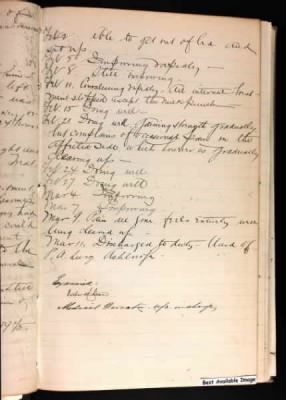 Feb 2 Able to get out of bed and
sit up
Feb 5 Improving rapidly
Feb 8 Still improving
Feb 11. Convalescing rapidly. All internal treat
ment stopped except the milk punch
Feb 15 Doing well
Feb 21 Doing well, gaining strength gradually
but complains of occasional pain on the
affected side which however is gradually
clearing up
Feb 24 Doing well
Feb 27 Doing well
Mar 4 Improving
Mar Improving
Mar 9. Pain all gone feels entirely well
lung cleared up
Mar 11. Discharged to duty
P. A. Surg
Medical
Best Available Image